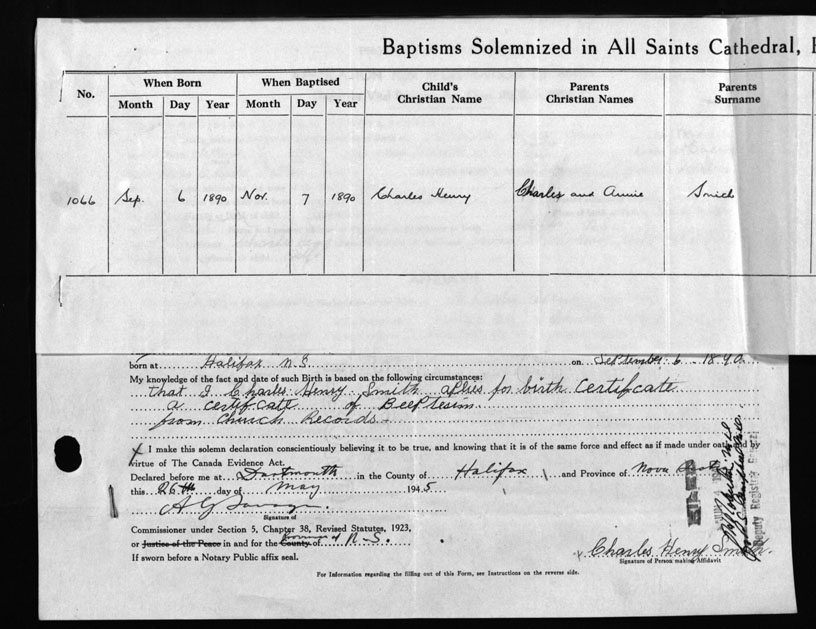 Baptisms Solemnized in All Saints Cathedral,
No. When Born When Baptised Child's Christian Name Parents Christian Names Parents Surname
Month Day Year Month Day Year
1066 Sep. 6 1890 Nov. 7 1890 Charles Henry Charles and Annie Smith
born at Halifax N S on September 6 1890
My knowledge of the fact and date of such Birth is based on the following circumstances:
that I Charles Henry Smith aplies for birth Certifcate
a certifcate of Beepteism
from Church Records
X I make this solemn declaration conscientiously believing it to be true, and knowing that it is of the same force and effect as if made under oath and by
virtue of The Canada Evidence Act.
Declared before me at Dartmouth in the County of Halifax and Province of Nova
this 26th day of May 1945
A G
Signature of
Commissioner under Section 5, Chapter 38, Revised Statutes, 1923,
or Justice of the Peace in and for the County of Province of N-S.
If sworn before a Notary Public affix seal.
Charles Henry Smith.
Signature of Person making Affidavit
For Information regarding the filling out of this Form, see Instructions on the reverse side.
Deputy Registrar General